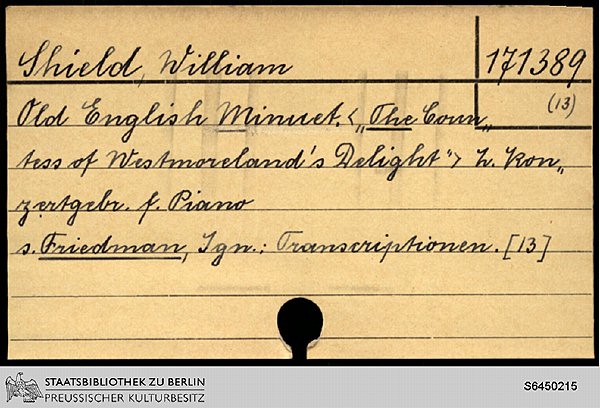 Shield, William
171389
(13)
Old English Minuet. <„The Coun„
tess of Westmoreland's Delight"> z. Kon„
zertgebr. f. Piano
s. Friedman, Ign.: Transcriptionen. [13]
STAATSBIBLIOTHEK ZU BERLIN
PREUSSISCHER KULTURBESITZ
S6450215